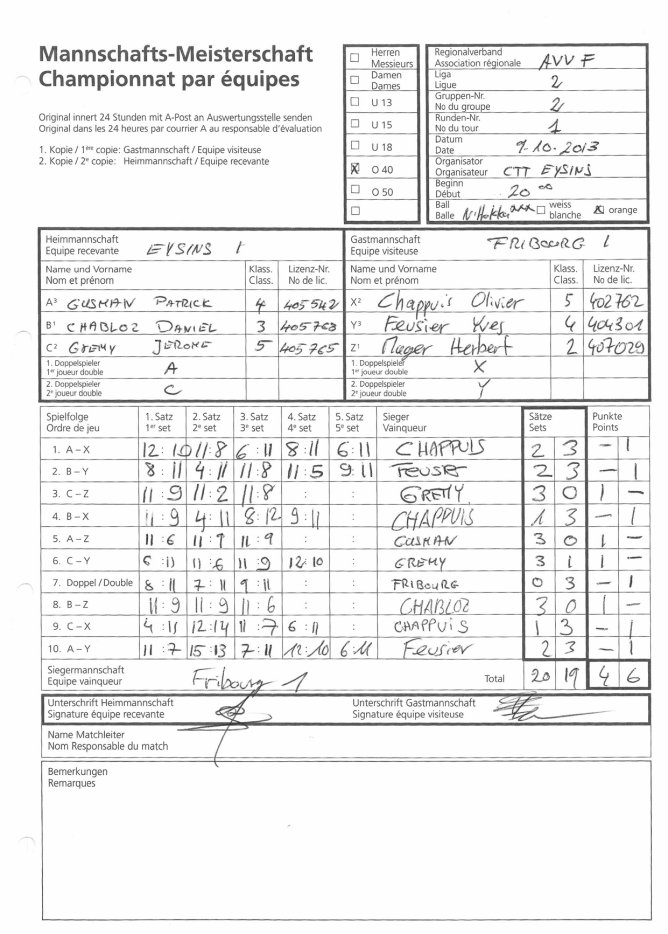 Mannschafts-Meisterschaft
Championnat par équipes
Original innert 24 Stunden mit A-Post an Auswertungsstelle senden
Original dans les 24 heures par courrier A au responsable d'évaluation
1. Kopie / 1ère copie: Gastmannschaft / Equipe visiteuse
2. Kopie / 2e copie: Heimmannschaft / Equipe recevante
Herren
Messieurs
Damen
Dames
U 13
U 15
U 18
X O 40
O 50
Regionalverband
Association régionale AVVF
Liga
Ligue 2
Gruppen-Nr.
No du groupe 2
Runden-Nr.
No du tour 1
Datum
Date 9.10.2013
Organisator
Organisateur CTT EYSINS
Beginn
Début 20 00
Ball
Balle weiss
blanche X orange
Heimmannschaft
Equipe recevante EYSINS 1
Gastmannschaft
Equipe visiteuse FRIBOURG 1
Name und Vorname Klass. Lizenz-Nr. Name und Vorname Klass. Lizenz-Nr.
Nom et prénom Class. No de lic. Nom et prénom Class. No de lic.
A3 GUSMAN PATRICK 4 405542 X2 Chappuis Olivier 5 402762
B1 CHABLOZ DANIEL 3 405763 Y3 Feusier Yves 4 404301
C2 GREMY JEROME 5 405765 Z1 Mager Herbert 2 407029
1. Doppelspieler 1. Doppelspieler
1er joueur double A 1er joueur double X
2. Doppelspieler 2. Doppelspieler
2e joueur double C 2e joueur double Y
Spielfolge 1. Satz 2. Satz 3. Satz 4. Satz 5. Satz Sieger Sätze Punkte
Ordre de jeu 1er set 2e set 3e set 4e set 5e set Vainqueur Sets Points
1. A – X 12:10 11:8 6:11 8:11 6:11 CHAPPUIS 2 3 – 1
2. B – Y 8:11 4:11 11:8 11:5 9:11 2 3 – 1
3. C – Z 11:9 11:2 11:8 : : GREMY 3 0 1 –
4. B – X 11:9 4:11 8:12 9:11 : CHAPPUIS 1 3 – 1
5. A – Z 11:6 11:7 11:9 : : GUSMAN 3 0 1 –
6. C – Y 6:11 11:6 11:9 12:10 : GREMY 3 1 1 –
7. Doppel / Double 8:11 7:11 9:11 : : FRIBOURG 0 3 – 1
8. B – Z 11:9 11:9 11:6 : : CHABLOZ 3 0 1 –
9. C – X 4:11 12:14 11:7 6:11 : CHAPPUIS 1 3 – 1
10. A – Y 11:7 15:13 7:11 12:10 6:11 Feusier 2 3 – 1
Siegermannschaft
Equipe vainqueur Fribourg 1 Total 20 19 4 6
Unterschrift Heimmannschaft Unterschrift Gastmannschaft
Signature équipe recevante Signature équipe visiteuse
Name Matchleiter
Nom Responsable du match
Bemerkungen
Remarques